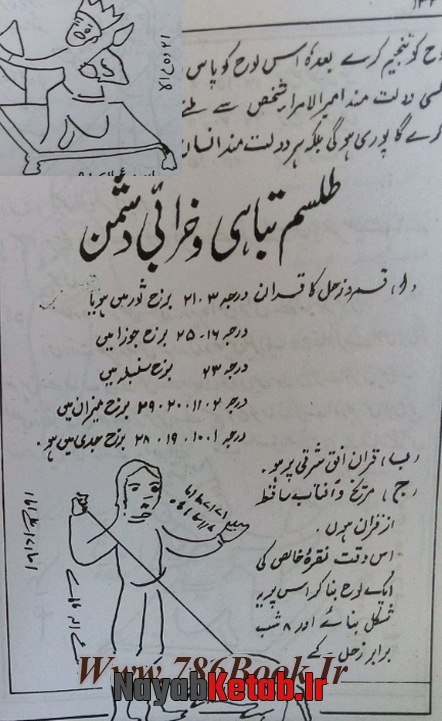 ح کو تنجیم کرے بعدہٗ اس لوح کو پاس
سی دولت مند امیر الامراء شخص سے ملے
رے گا پوری ہوگی بلکہ ہر دولت مند انسان
طلسم تباہی و خرابی دشمن
(ا) قمر و زحل کا قران درجہ ۳-۲۱ برج ثور میں ہو یا
درجہ ۱۶-۲۵ برج جوزا میں
درجہ ۲۳ برج سنبلہ میں
درجہ ۲-۱۱-۲۰-۲۹ برج میزان میں
درجہ ۱-۱۰-۱۹-۲۸ برج جدی میں ہو۔
(ب) قران افق شرقی پر ہو۔
(ج) مریخ و آفتاب ساقط
از قران ہوں۔
اس وقت نقرہ خالص کی
ایک لوح بنا کر اس پر یہ
شکل بنائے اور ۸ شب
برابر زحل کے
Www.786Book.Ir
NayabKetab.Ir